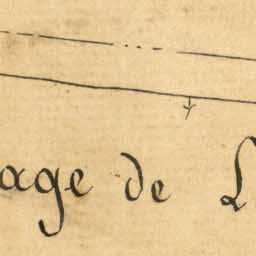 age de L